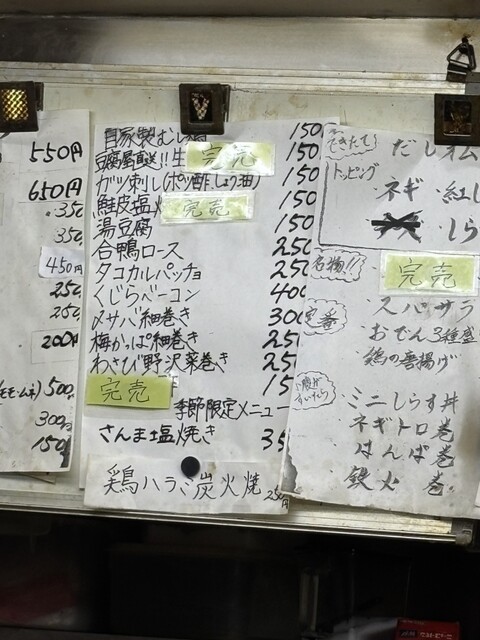 550円
650円
350
350
450円
250
250
200円
(モモ・ムネ) 500
300
150
自家製むし 150
豆腐屋直送!!生 完売 150
ガツ刺し(ポン酢、しょう油) 150
鮭皮塩 完売 150
湯豆腐 150
合鴨ロース 250
タコカルパッチョ 250
くじらベーコン 400
〆サバ細巻き 300
梅かっぱ細巻き 250
わさび野沢菜巻き 250
完売 15
季節限定メニュー
さんま塩焼き 35
鶏ハラミ炭火焼 250円
できたて! だしオム
トッピング
・ネギ ・紅し
・しら
名物!! 完売
定番 ・スパサラ
・おでん3種盛
・鶏の唐揚げ
・ミニしらす丼
ネギトロ巻
はんぱ巻
鉄火巻